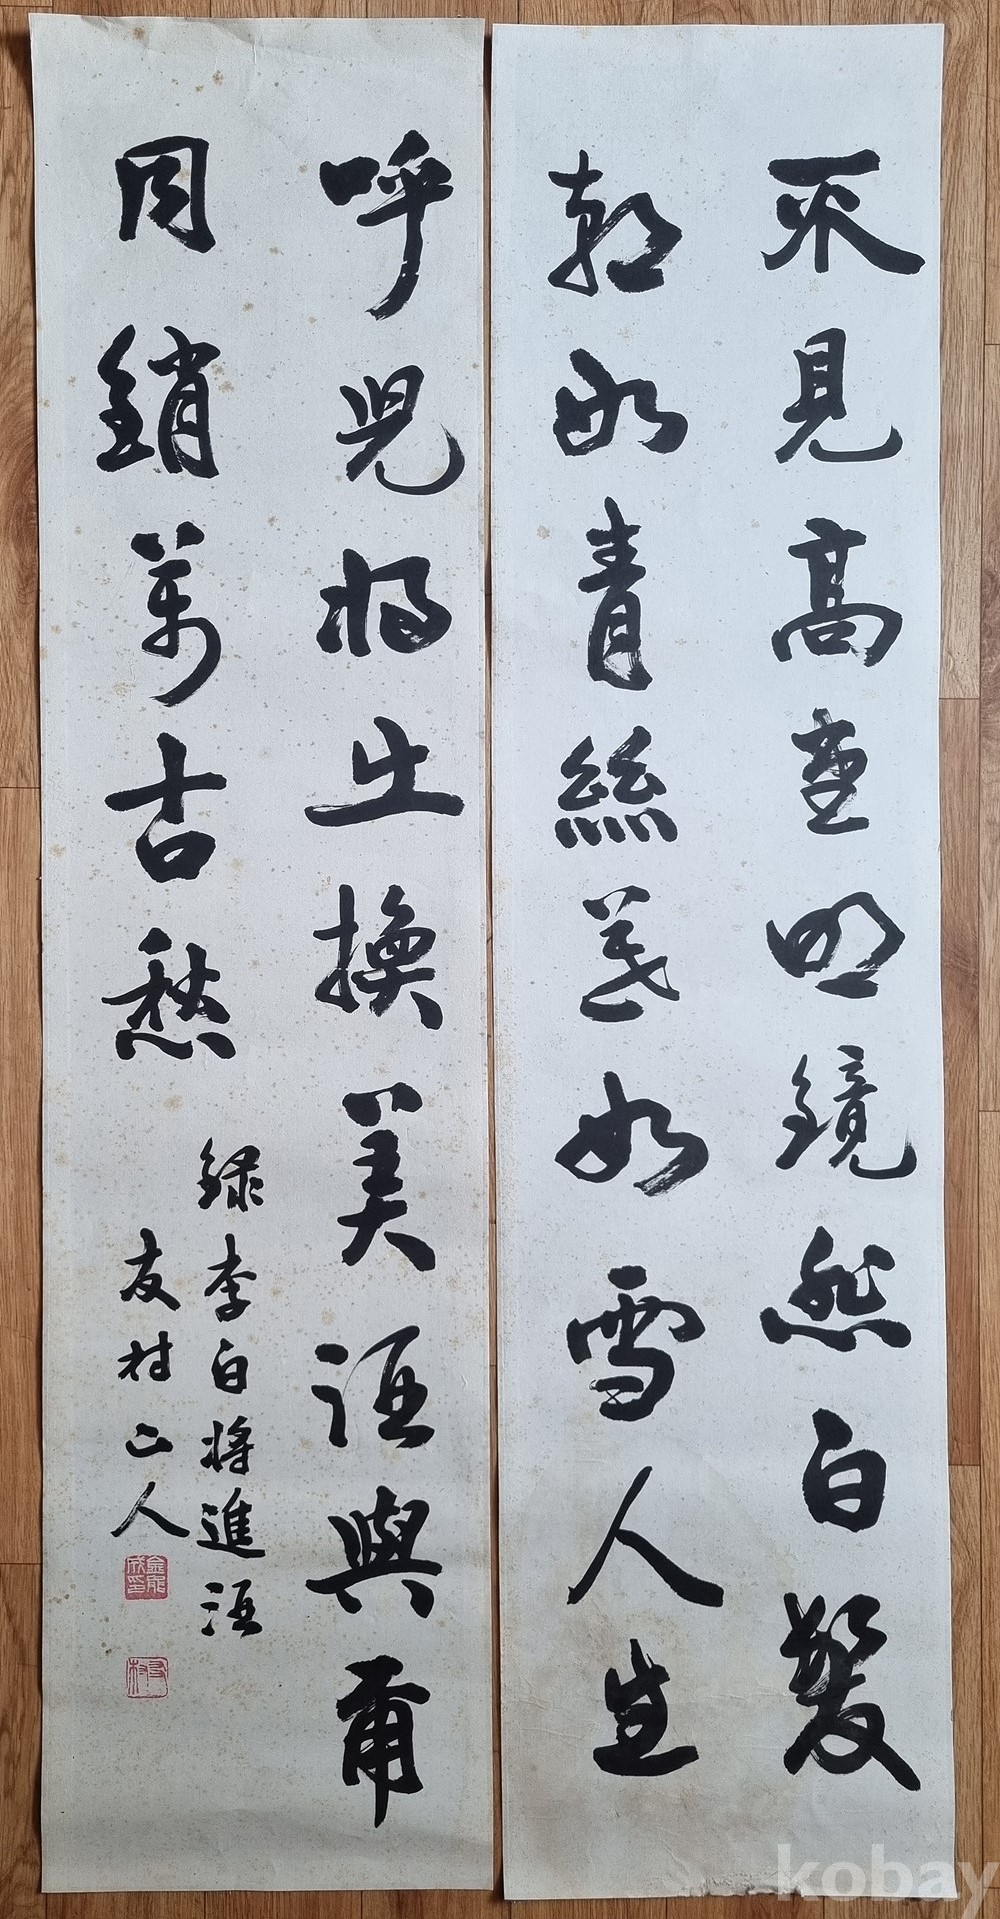 不見高堂明鏡悲白髮
朝如青絲暮如雪人生
呼兒將出換美酒與爾
同銷萬古愁
錄李白將進酒
友村山人
友村
kobay